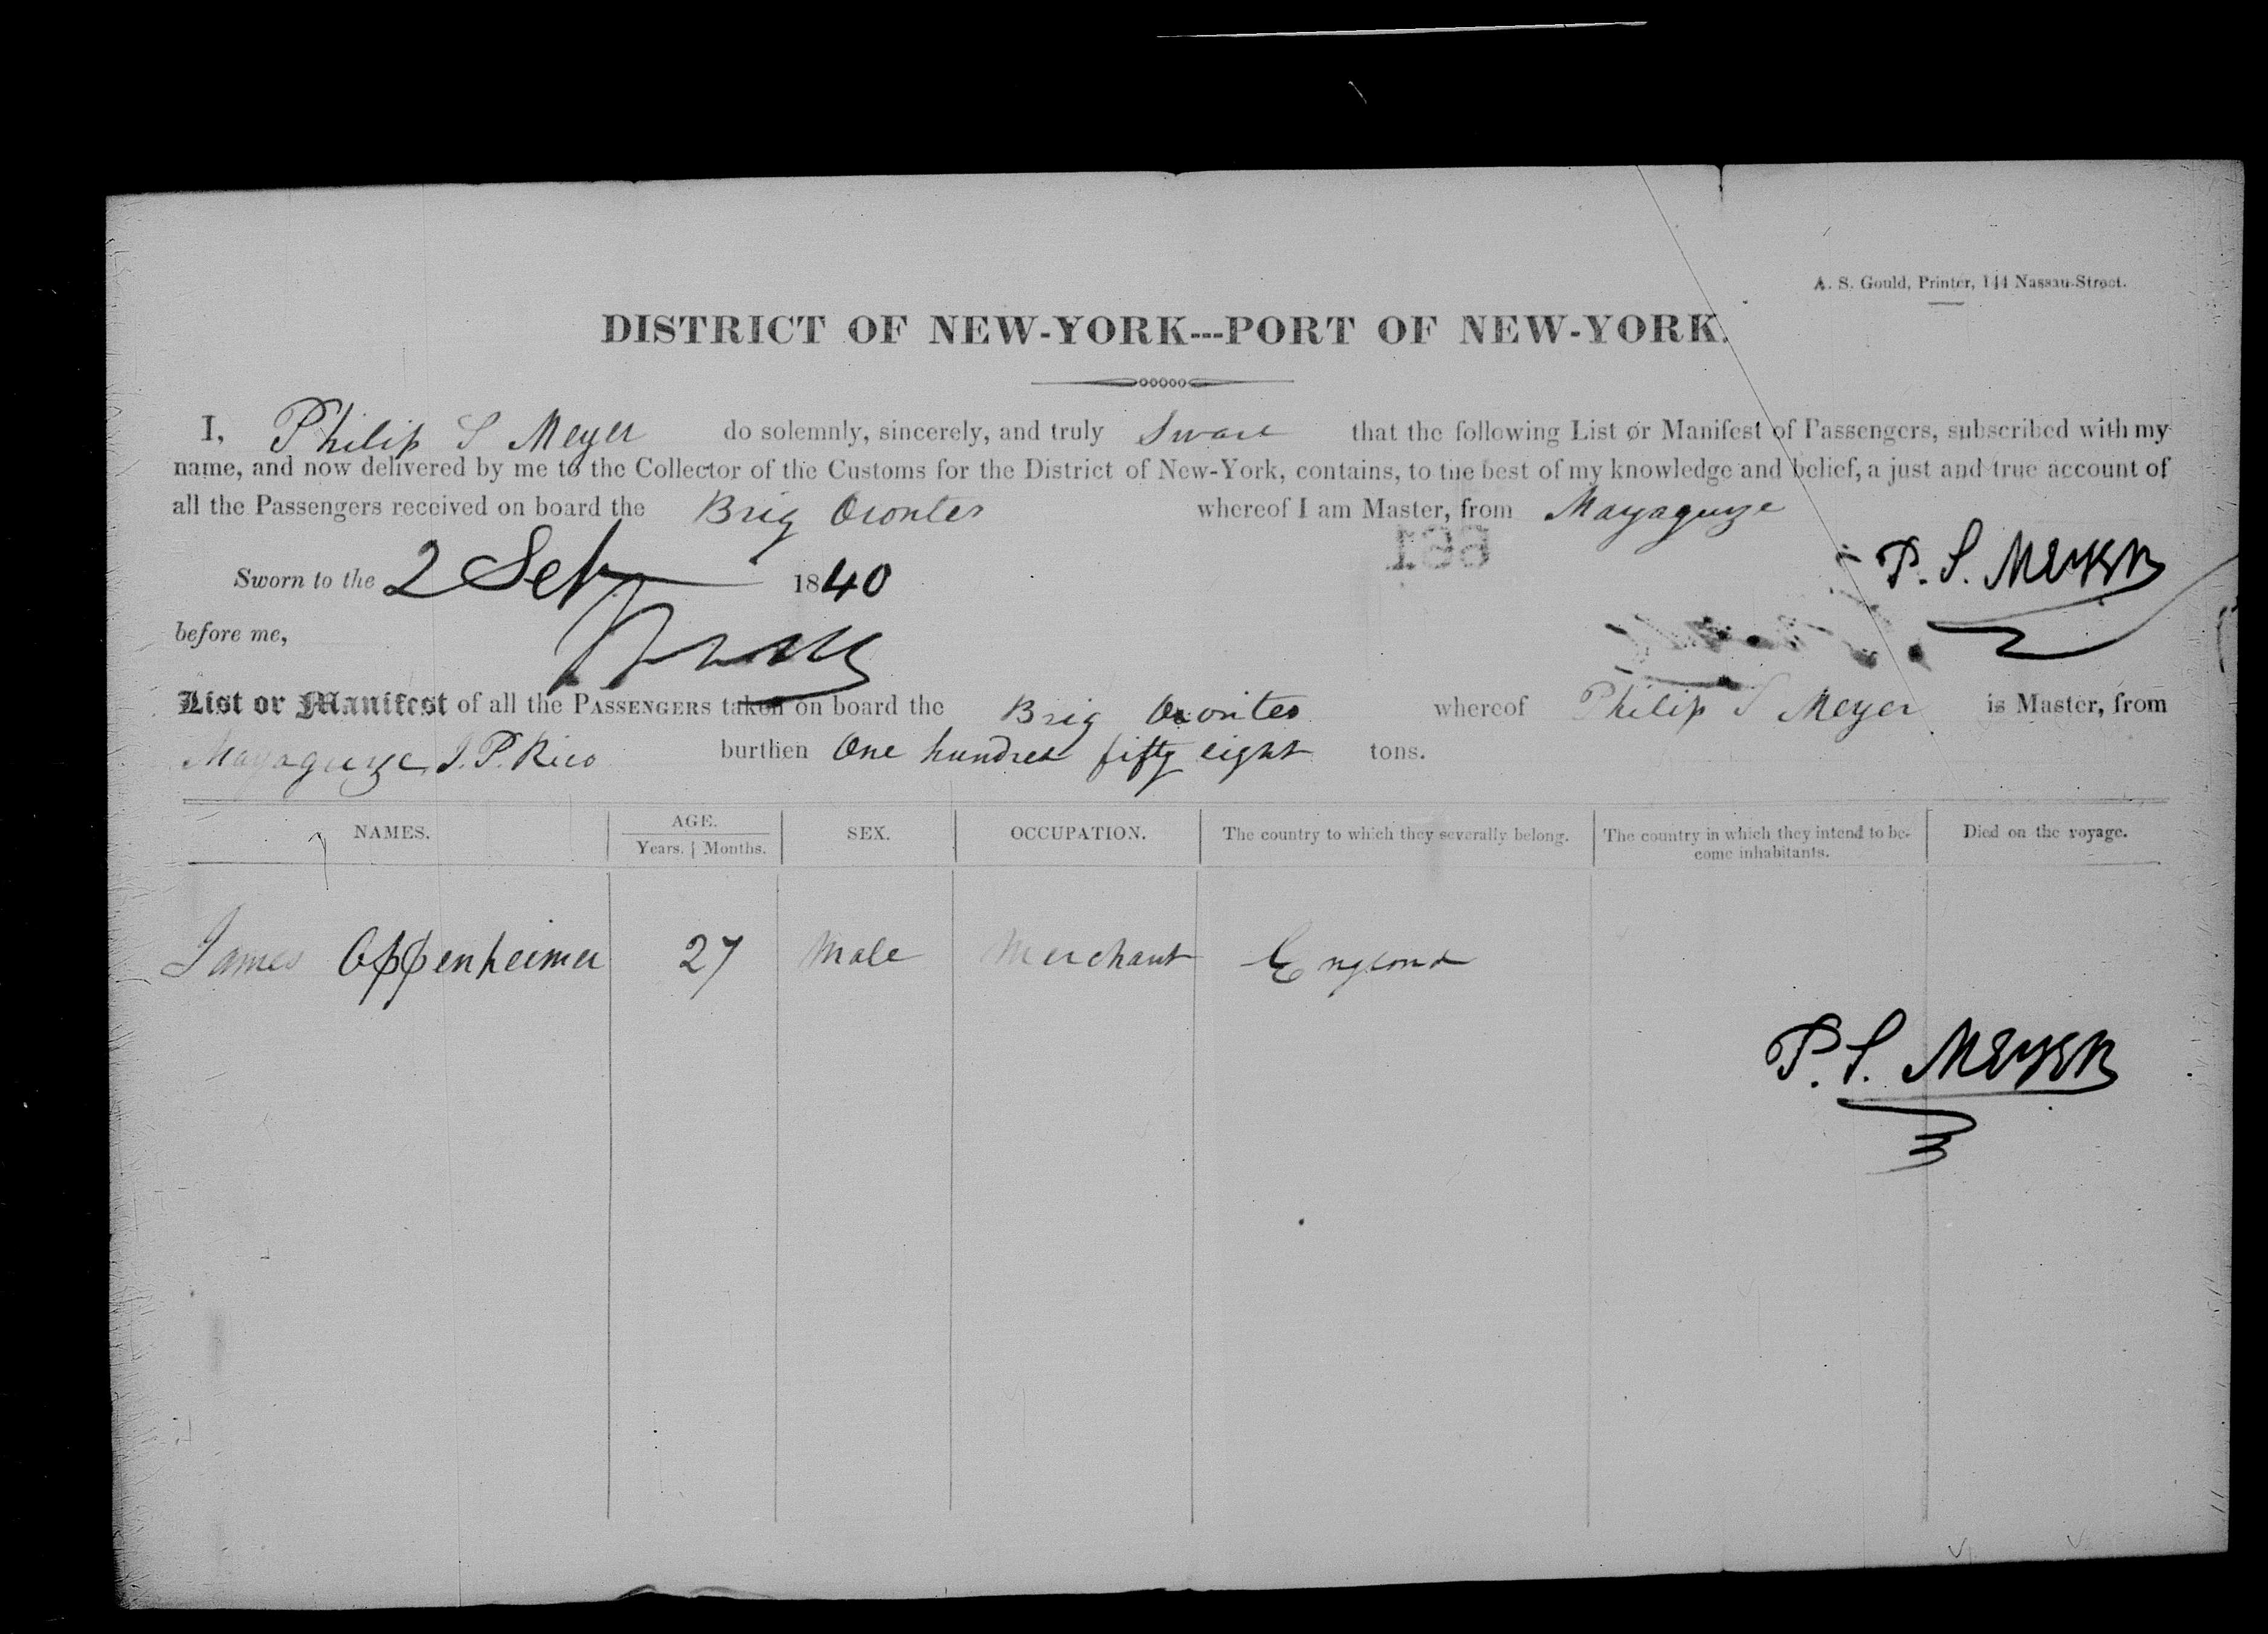 A. S. Gould, Printer, 144 Nassau-Street.
DISTRICT OF NEW-YORK---PORT OF NEW-YORK.
I, Philip S Meyer do solemnly, sincerely, and truly Swear that the following List or Manifest of Passengers, subscribed with my
name, and now delivered by me to the Collector of the Customs for the District of New-York, contains, to the best of my knowledge and belief, a just and true account of
all the Passengers received on board the Brig Orontes whereof I am Master, from Mayagueze
P. S. MEYER
Sworn to the 2 Sep 1840
before me,
List or Manifest of all the PASSENGERS taken on board the Brig Orontes whereof Philip S Meyer is Master, from
Mayagueze, I. P. Rico burthen One hundred fifty eight tons.
NAMES. AGE. Years. Months. SEX. OCCUPATION. The country to which they severally belong. The country in which they intend to become inhabitants. Died on the voyage.
James Oppenheimer 27 Male Merchant England
P. S. MEYER